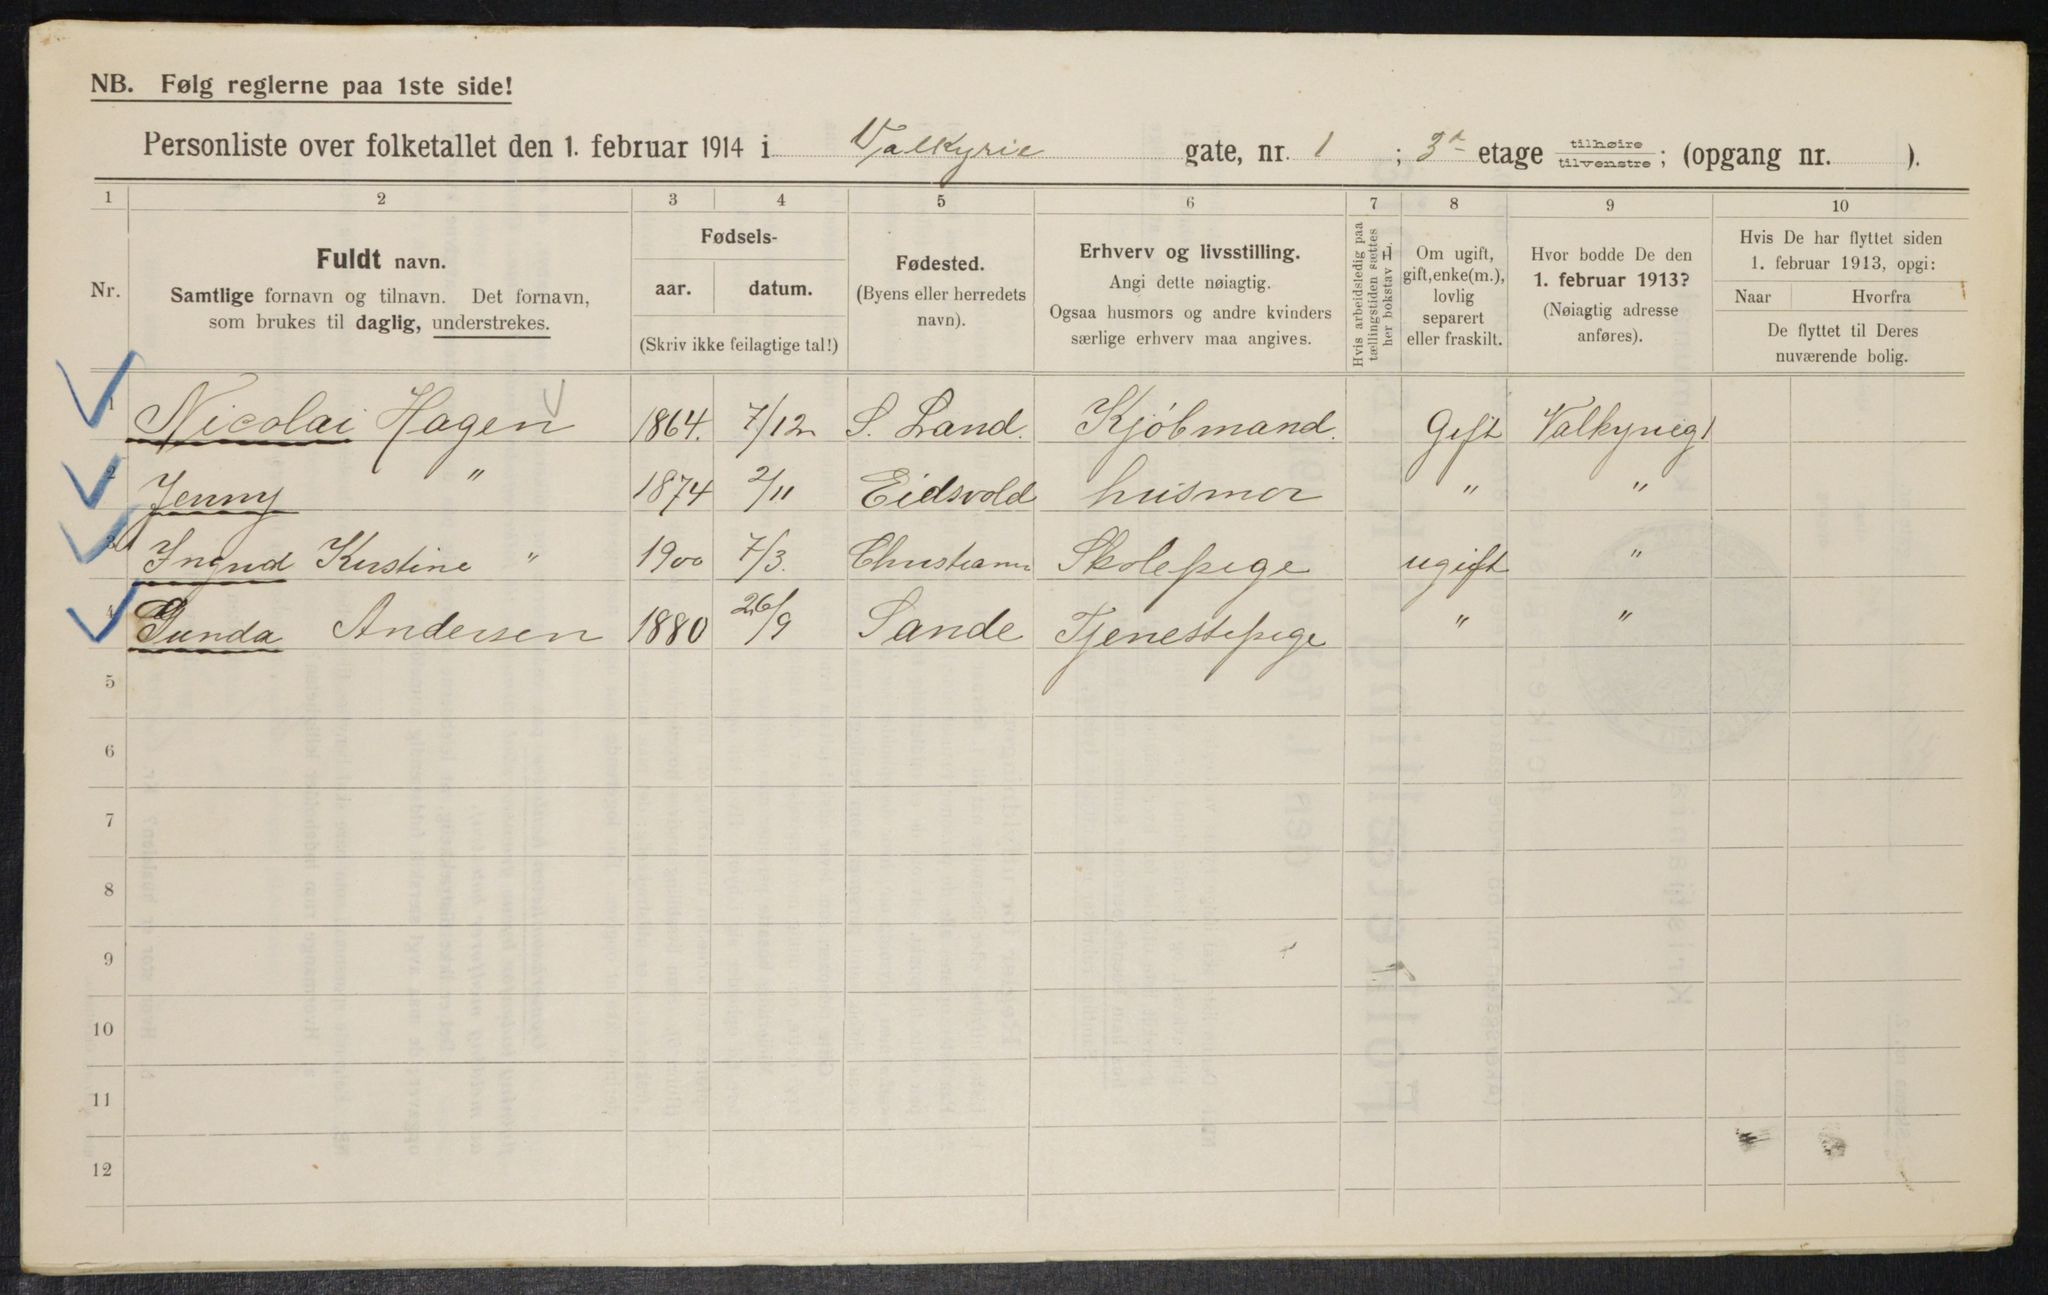 NB. Følg reglerne paa 1ste side!
Personliste over folketallet den 1. februar 1914 i Valkyrie gate, nr. 1 ; 3die etage tilhøire tilvenstre ; (opgang nr. ).
1 2 3 4 5 6 7 8 9 10
Nr.
Fuldt navn.
Samtlige fornavn og tilnavn. Det fornavn,
som brukes til daglig, understrekes.
Fødsels-
aar. datum.
(Skriv ikke feilagtige tal!)
Fødested.
(Byens eller herredets
navn).
Erhverv og livsstilling.
Angi dette nøiagtig.
Ogsaa husmors og andre kvinders
særlige erhverv maa angives.
Hvis arbeidsledig paa
tællingstiden sættes
her bokstav l.
Om ugift,
gift, enke(m.),
lovlig
separert
eller fraskilt.
Hvor bodde De den
1. februar 1913?
(Nøiagtig adresse
anføres).
Hvis De har flyttet siden
1. februar 1913, opgi:
Naar Hvorfra
De flyttet til Deres
nuværende bolig.
1 Nicolai Hagen 1864. 7/12 S. Land. Kjøbmand. Gift Valkyrieg 1
2 Jenny " 1874 2/11 Eidsvold husmor " "
3 Ingrid Kirstine " 1900 7/3. Christiania Skolepige ugift "
4 Gunda Andersen 1880 26/9 Sande Tjenestepige " "
5
6
7
8
9
10
11
12